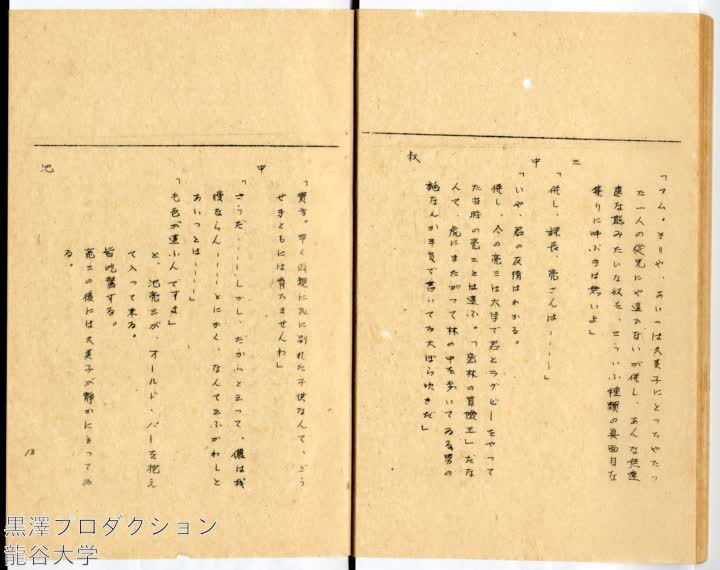 「フム。そりや、あいつは久美子にとつちやたつ
た一人の従兄にや違ひないが併し、あんな無遠
慮な熊みたいな奴を、こういふ種類の真面目な
集りに呼ぶ手は無いよ」
三
「併し、課長、亮さんは————」
中
「いや、君の友情はわかる。
併し、今の亮三は大学で君とラグビーをやつて
た当時の亮三とは違ふ。「密林の冒険王」だな
んて、虎にまたがつて林の中を歩いてゐる男の
話なんか平気で書いてゐる大ぼら吹きだ」
叔
「貴方。早く両親に死に別れた子供なんて、どう
せまともには育ちませんわ」
中
「さうだ————しかし、だからと云つて、儂は我
慢ならん————とにかく、なんて云ふがわしと
あいつとは————」
「毛色が違ふんですよ」
と、池亮三が、オールド・パーを抱え
て入つて来る。
皆吃驚する。
亮三の後には久美子が静かに立つてゐ
る。
池
13
黒澤プロダクション
龍谷大学